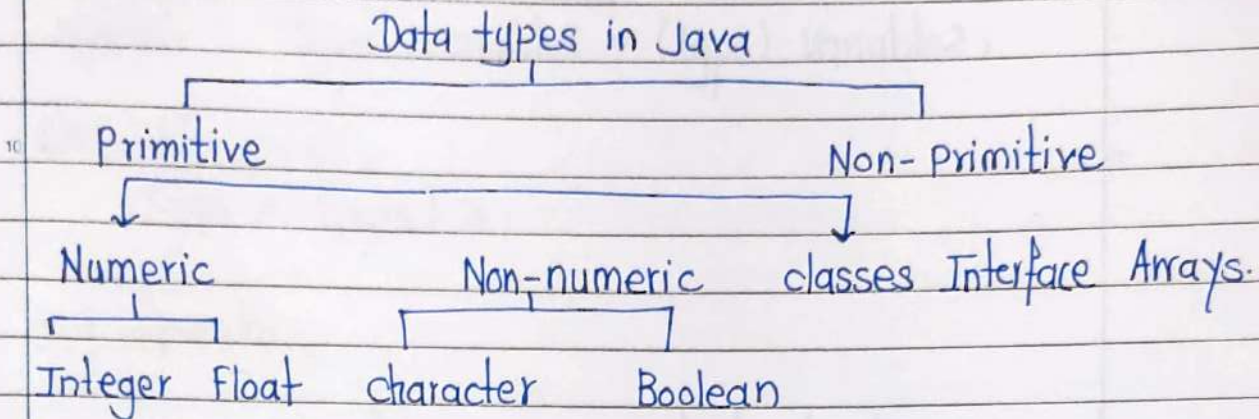 Data types in Java
10 Primitive Non-primitive
Numeric Non-numeric classes Interface Arrays.
Integer Float character Boolean